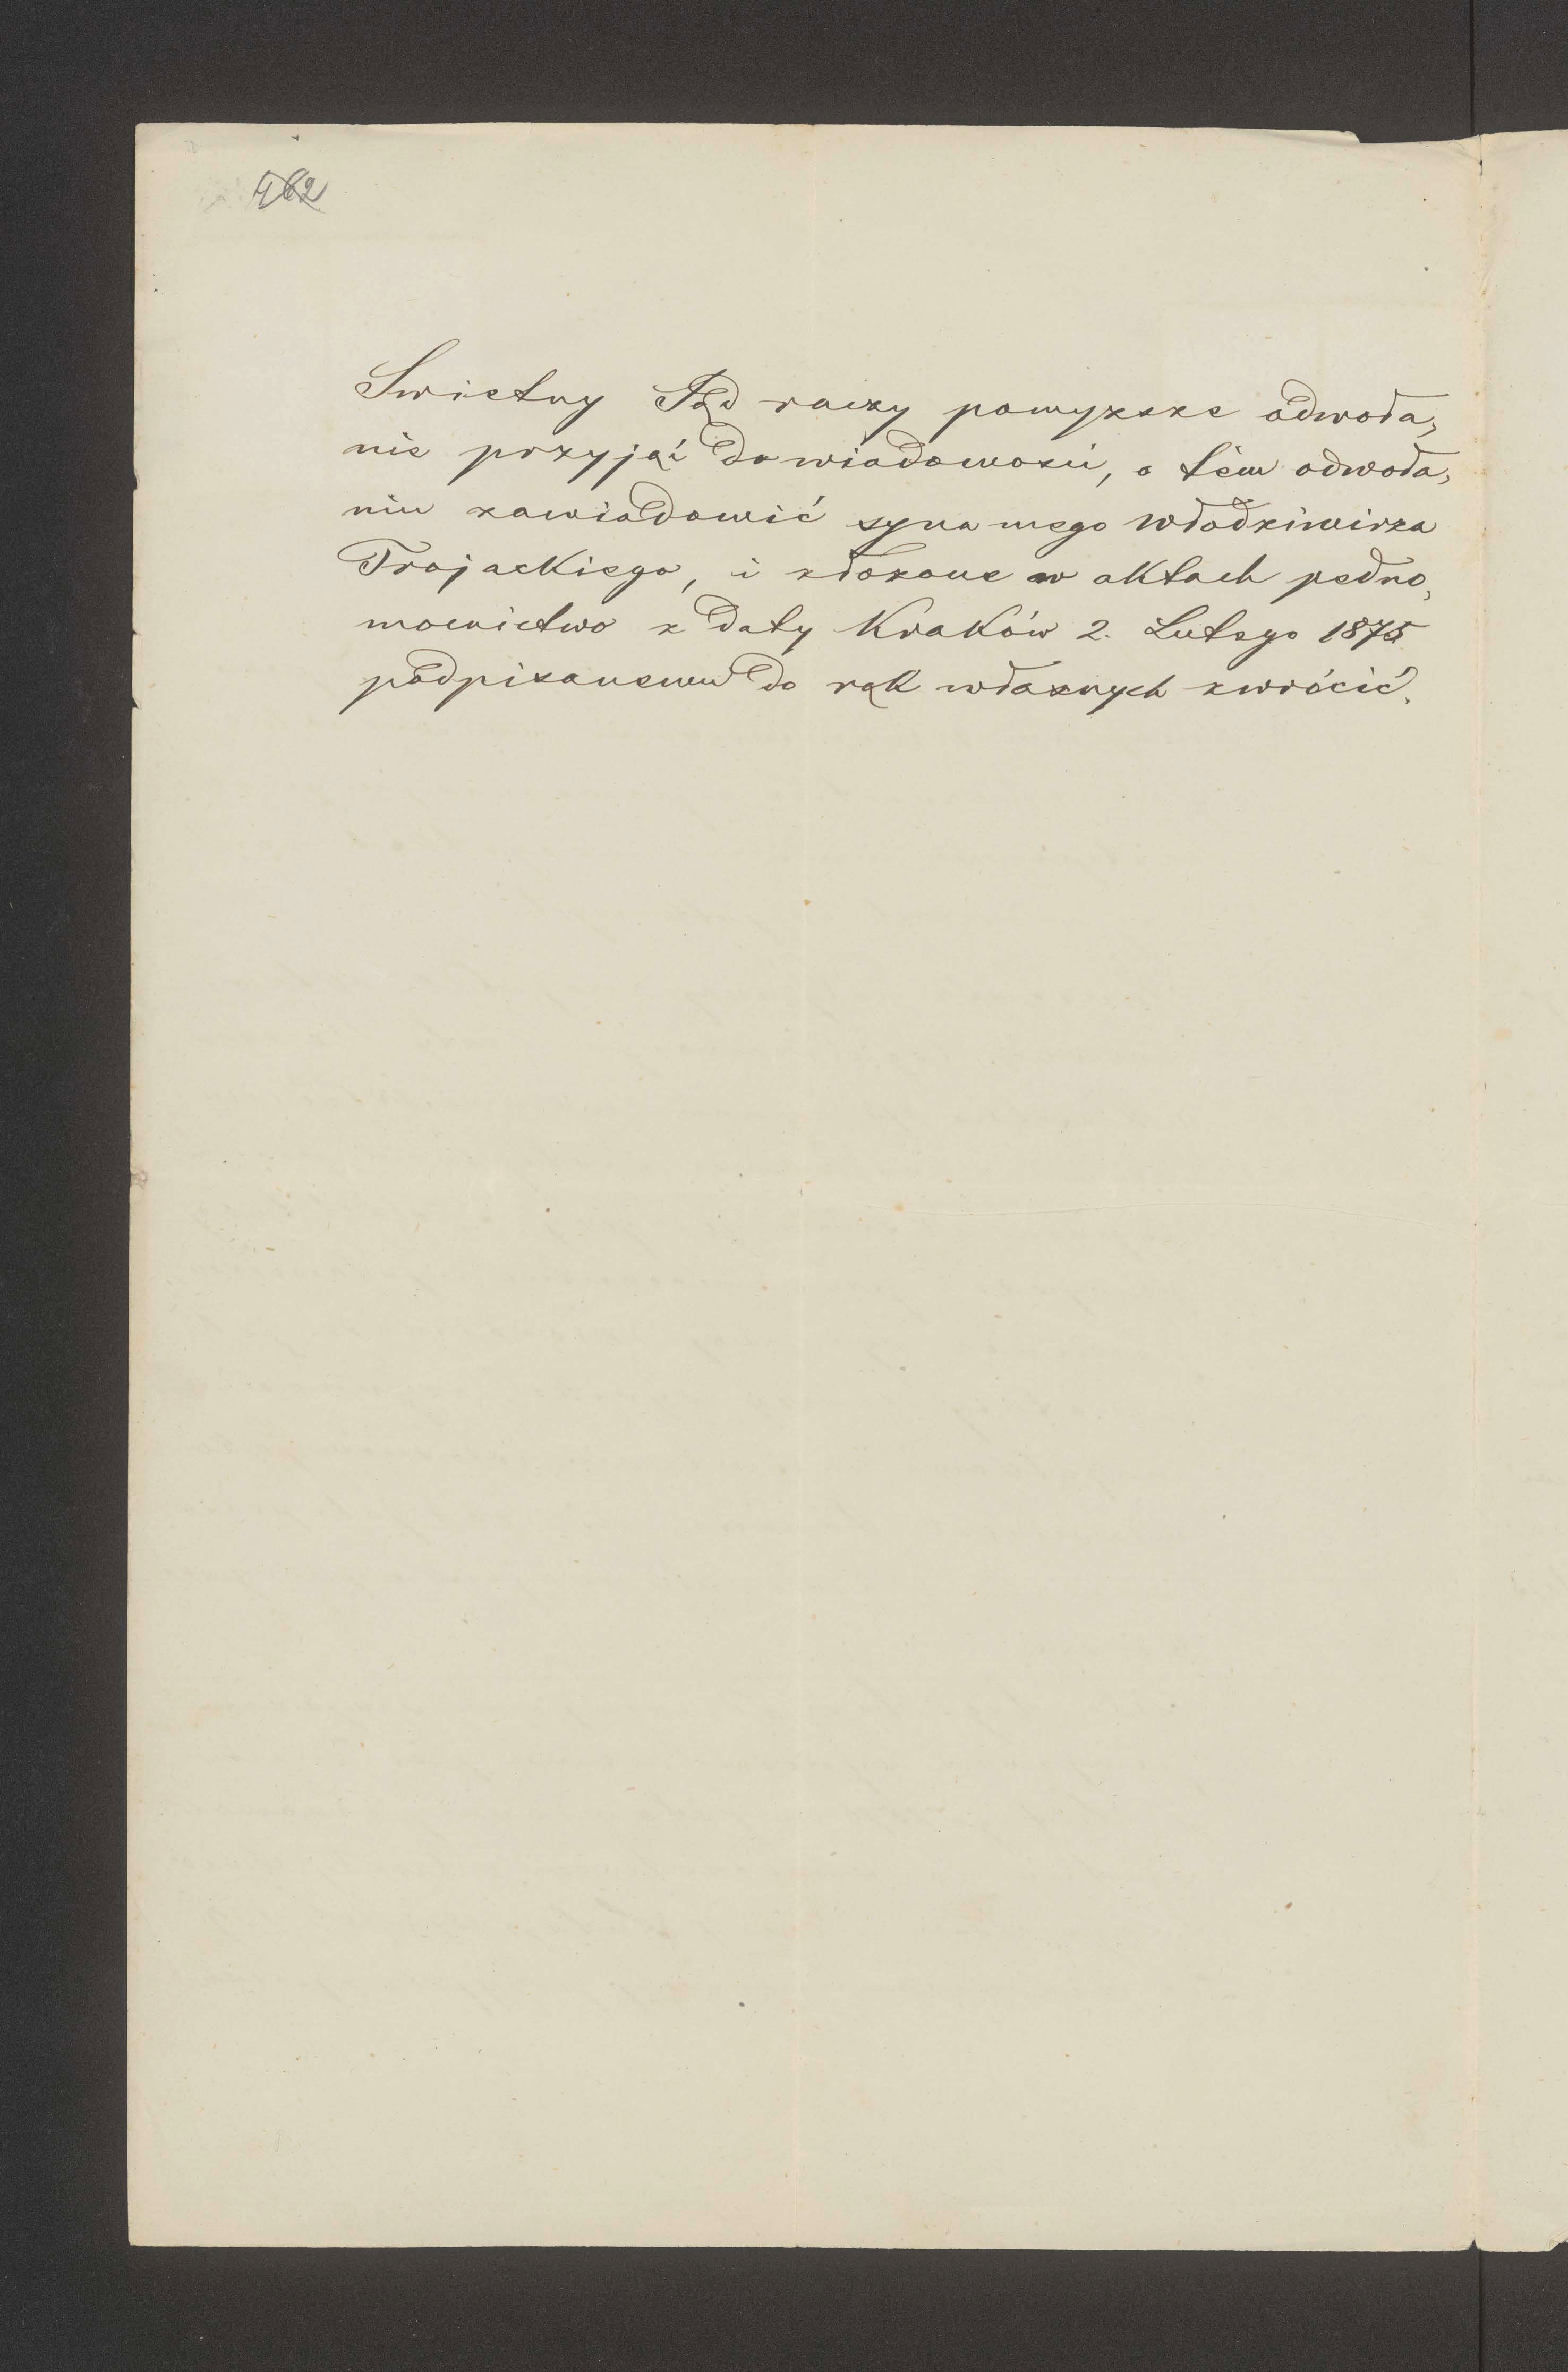 462
Swietny Sąd raczy powyższe odwoła,
nie przyjąć do wiadomości, o tém odwoła,
niu zawiadomić syna mego Włodzimirza
Trojackiego, i złożone w aktach pełno,
mocnictwo z daty Kraków 2. Lutego 1875
podpisanemu do rąk własnych zwrócić.